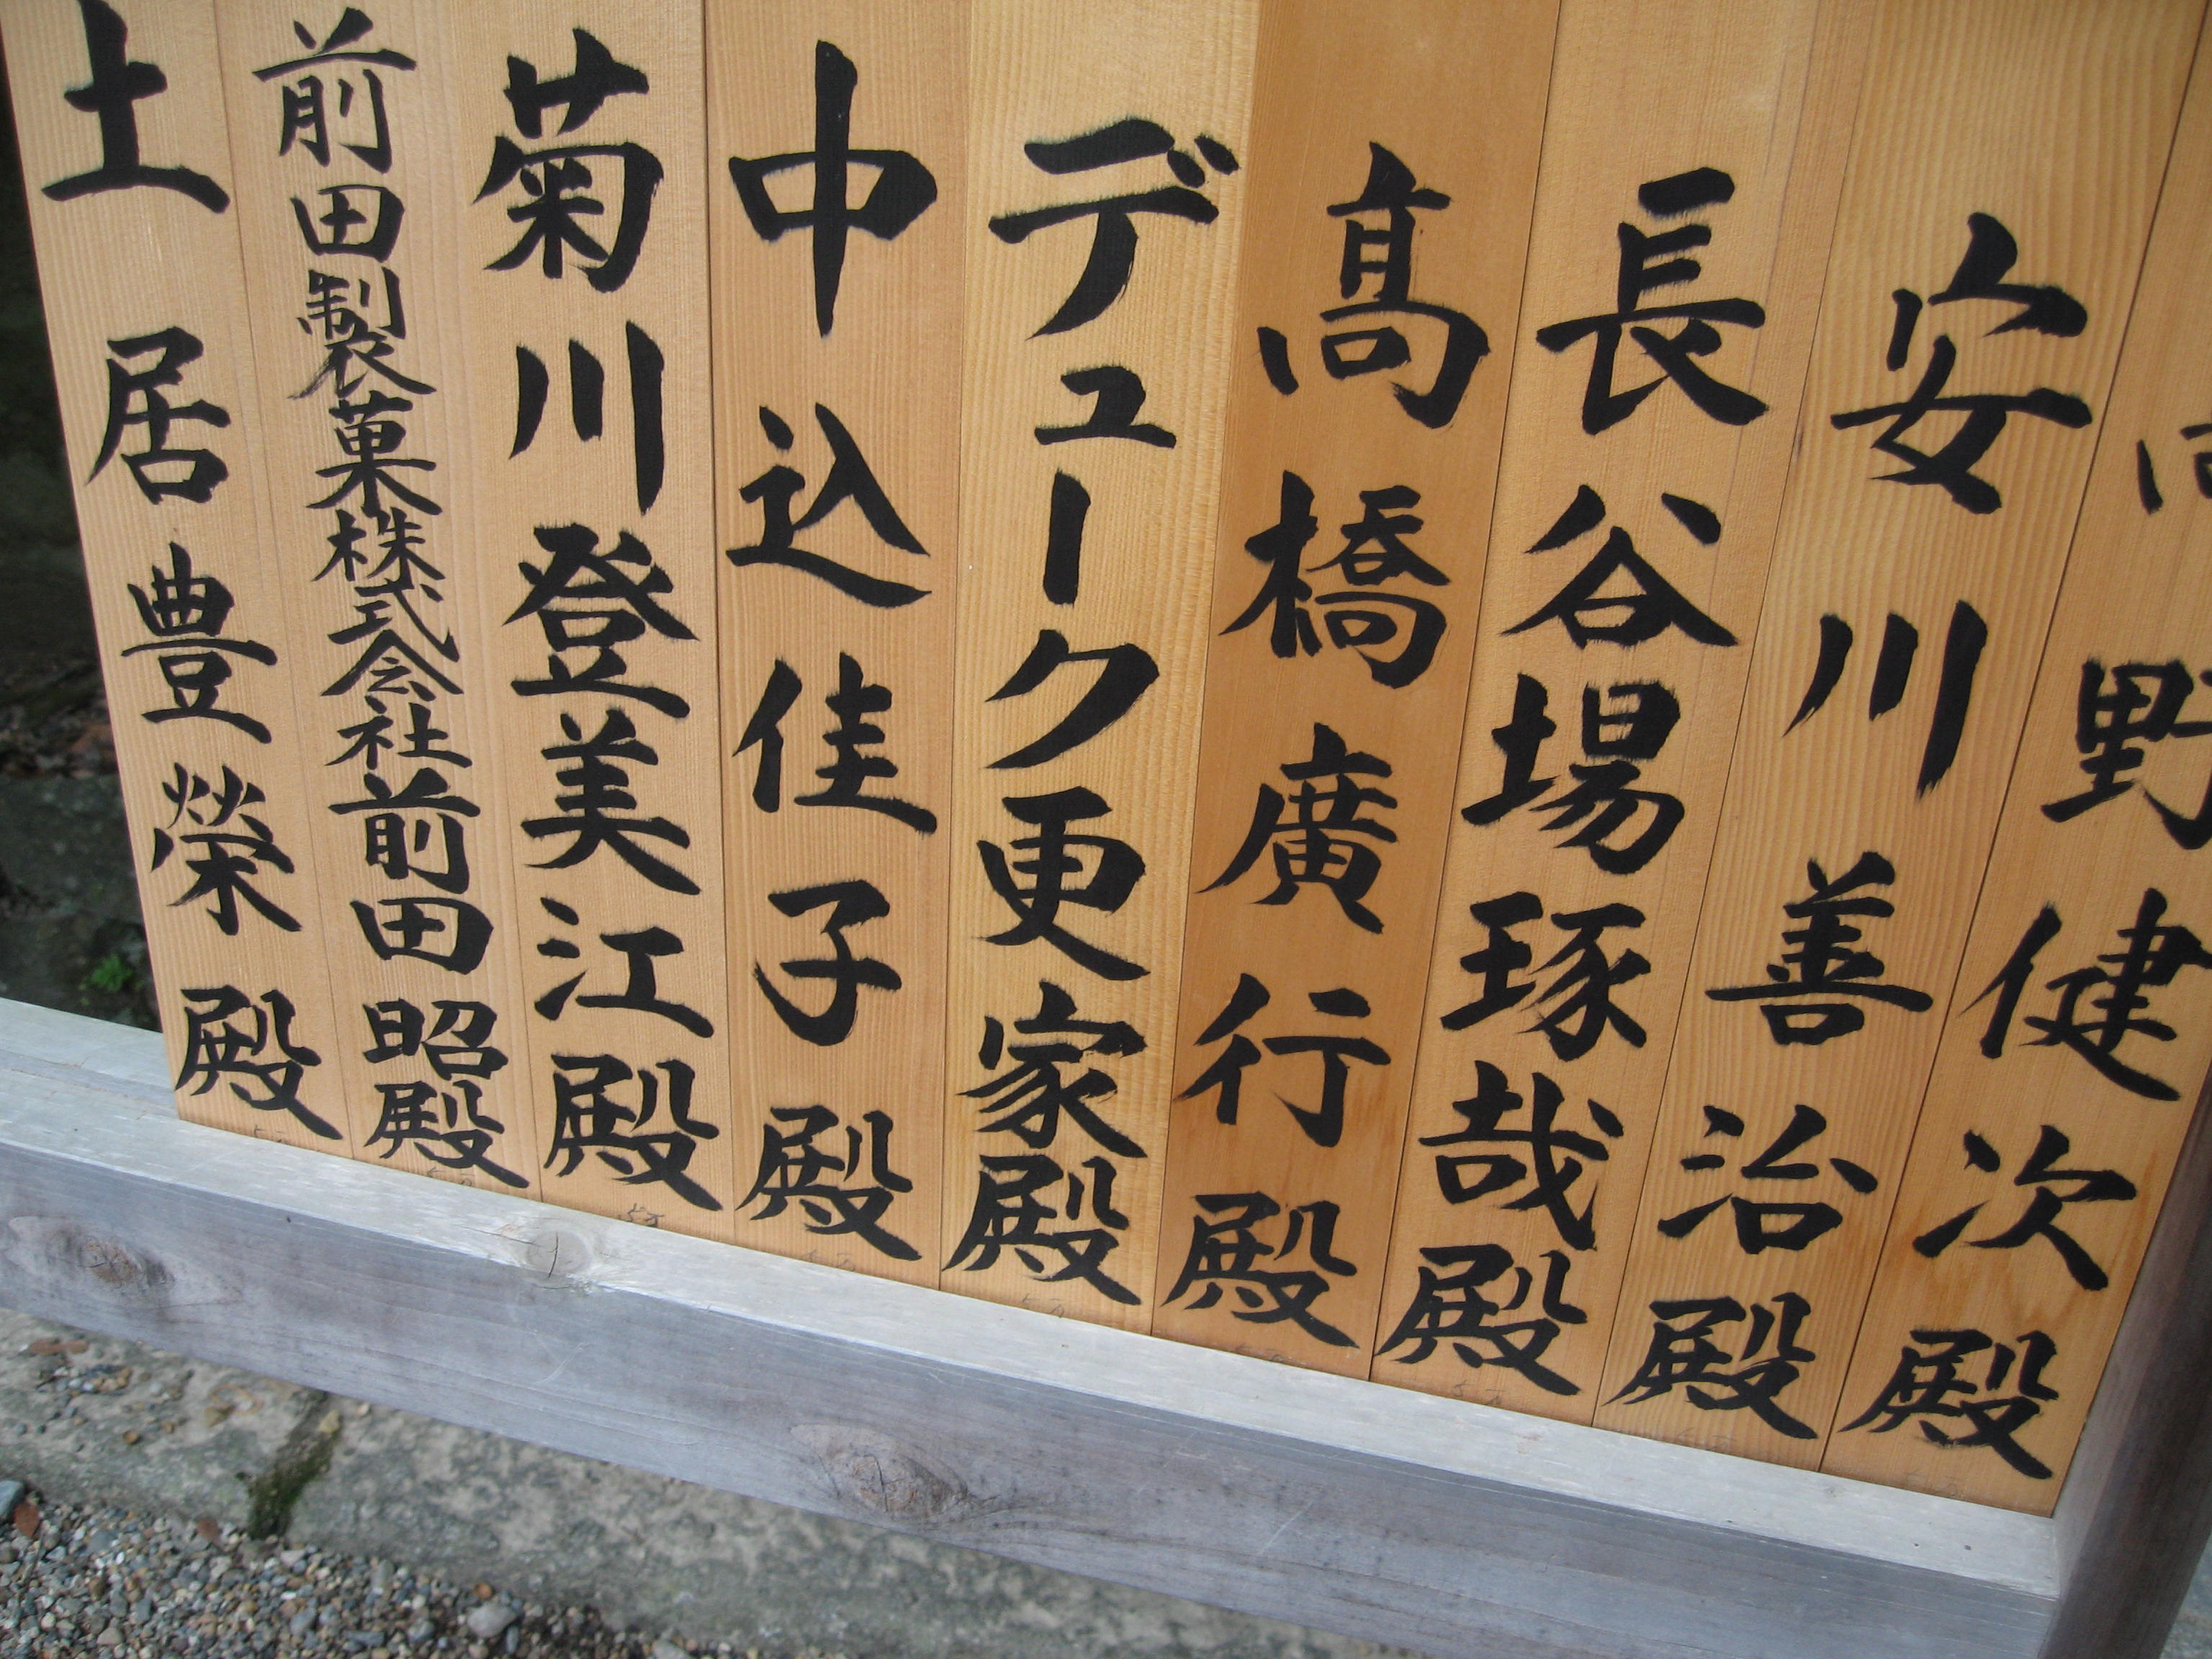 野健次殿
安川善治殿
長谷場琢哉殿
髙橋廣行殿
デューク更家殿
中込佳子殿
菊川登美江殿
前田製菓株式会社前田昭殿
土居豊榮殿